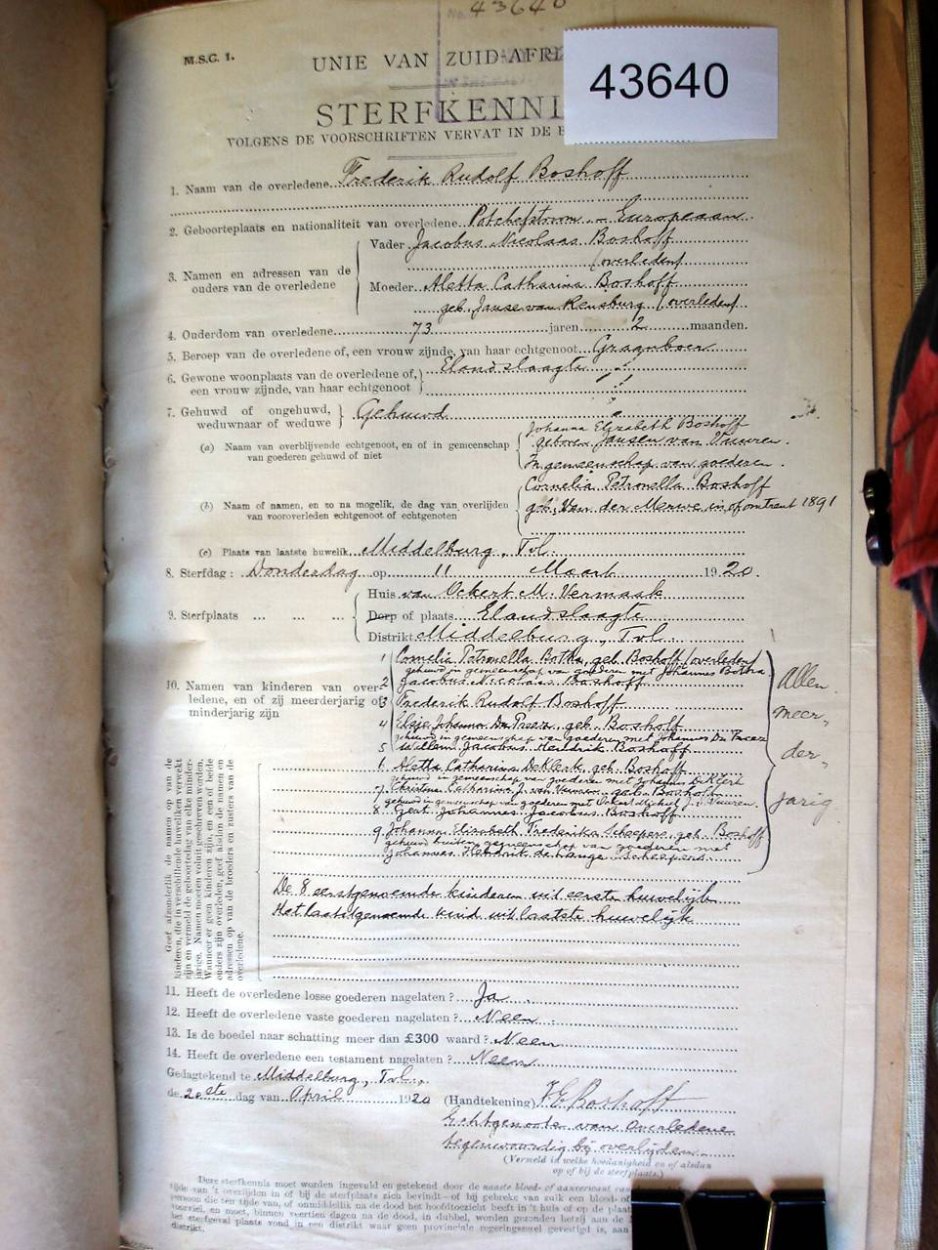 43640
M.S.C. 1.
UNIE VAN ZUID-AFRI
43640
STERFKENNI
VOLGENS DE VOORSCHRIFTEN VERVAT IN DE
1. Naam van de overledene Frederik Rudolf Boshoff
2. Geboorteplaats en nationaliteit van overledene Potchefstroom - Europeaan
3. Namen en adressen van de ouders van de overledene
Vader Jacobus Nicolaas Boshoff
(overleden)
Moeder Aletta Catharina Boshoff
geb. Janse van Rensburg (overleden)
4. Ouderdom van overledene 73 jaren 2 maanden.
5. Beroep van de overledene of, een vrouw zijnde, van haar echtgenoot Graanboer
6. Gewone woonplaats van de overledene of, een vrouw zijnde, van haar echtgenoot Elandslaagte
7. Gehuwd of ongehuwd, weduwnaar of weduwe Gehuwd
(a) Naam van overblijvende echtgenoot, en of in gemeenschap van goederen gehuwd of niet
Johanna Elizabeth Boshoff
geboren Jansen van Vuuren.
In gemeenschap van goederen.
(b) Naam of namen, en zo na mogelik, de dag van overlijden van vooroverleden echtgenoot of echtgenoten
Cornelia Petronella Boshoff
geb. Van der Merwe in of omtrent 1891
(c) Plaats van laatste huwelik Middelburg, Tvl.
8. Sterfdag: Donderdag op 11 Maart 1920.
9. Sterfplaats ... ... ...
Huis van Ockert M. Vermaak
Dorp of plaats Elandslaagte
Distrikt Middelburg, Tvl.
10. Namen van kinderen van overledene, en of zij meerderjarig of minderjarig zijn
1 Cornelia Petronella Botha, geb. Boshoff (overleden)
gehuwd in gemeenschap van goederen met Johannes Botha
2 Jacobus Nicolaas Boshoff
3 Frederik Rudolf Boshoff
4 Elsje Johanna Du Preez, geb. Boshoff
gehuwd in gemeenschap van goederen met Johannes Du Preez
5 Willem Jacobus Hendrik Boshoff
6 Aletta Catharina De Klerk, geb. Boshoff
gehuwd in gemeenschap van goederen met Johannes De Klerk
7 Christina Catharina J. van Vuuren geb. Boshoff
gehuwd in gemeenschap van goederen met Ockert J. v. Vuuren.
8 Gert Johannes Jacobus Boshoff
9 Johanna Elizabeth Frederika Scheepers, geb. Boshoff
gehuwd buiten gemeenschap van goederen met
Johannes Hendrik de Lange Scheepers.
Allen
meer-
der-
jarig
Geef afzonderlik de namen op van de
kinderen, die in verschillende huweliken verwekt
zijn en vermeld de geboortedag van elke minder-
jarige. Namen moeten voluit geschreven worden.
Wanneer er geen kinderen zijn, en een of beide
ouders zijn overleden, geef alsdan de namen en
adressen op van de broeders en zusters van de
overledene.
De 8 eerstgenoemde kinderen uit eerste huwelijk
Het laatstgenoemde kind uit laatste huwelijk
11. Heeft de overledene losse goederen nagelaten? Ja.
12. Heeft de overledene vaste goederen nagelaten? Neen
13. Is de boedel naar schatting meer dan £300 waard? Neen
14. Heeft de overledene een testament nagelaten? Neen
Gedagtekend te Middelburg, Tvl.,
de 20ste dag van April 1920 (Handtekening) Boshoff
Echtgenoote van Overledene
tegenwoordig bij overlijden.
(Vermeld in welke hoedanigheid en of alsdan
op of bij de sterfplaats)
Deze sterfkennis moet worden ingevuld en getekend door de naaste bloed- of aanverwant van
tijde van 't overlijden in of bij de sterfplaats zich bevindt—of bij gebreke van zulk een bloed- of
persoon die ten tijde van, of onmiddellik na de dood het hoofdtoezicht heeft in 't huis of op de plaats
voorviel, en moet, binnen veertien dagen na de dood, in dubbel, worden gezonden hetzij aan de
het sterfgeval plaats vond in een distrikt waar geen provinciale regeringszetel gevestigd is, aan
distrikt.